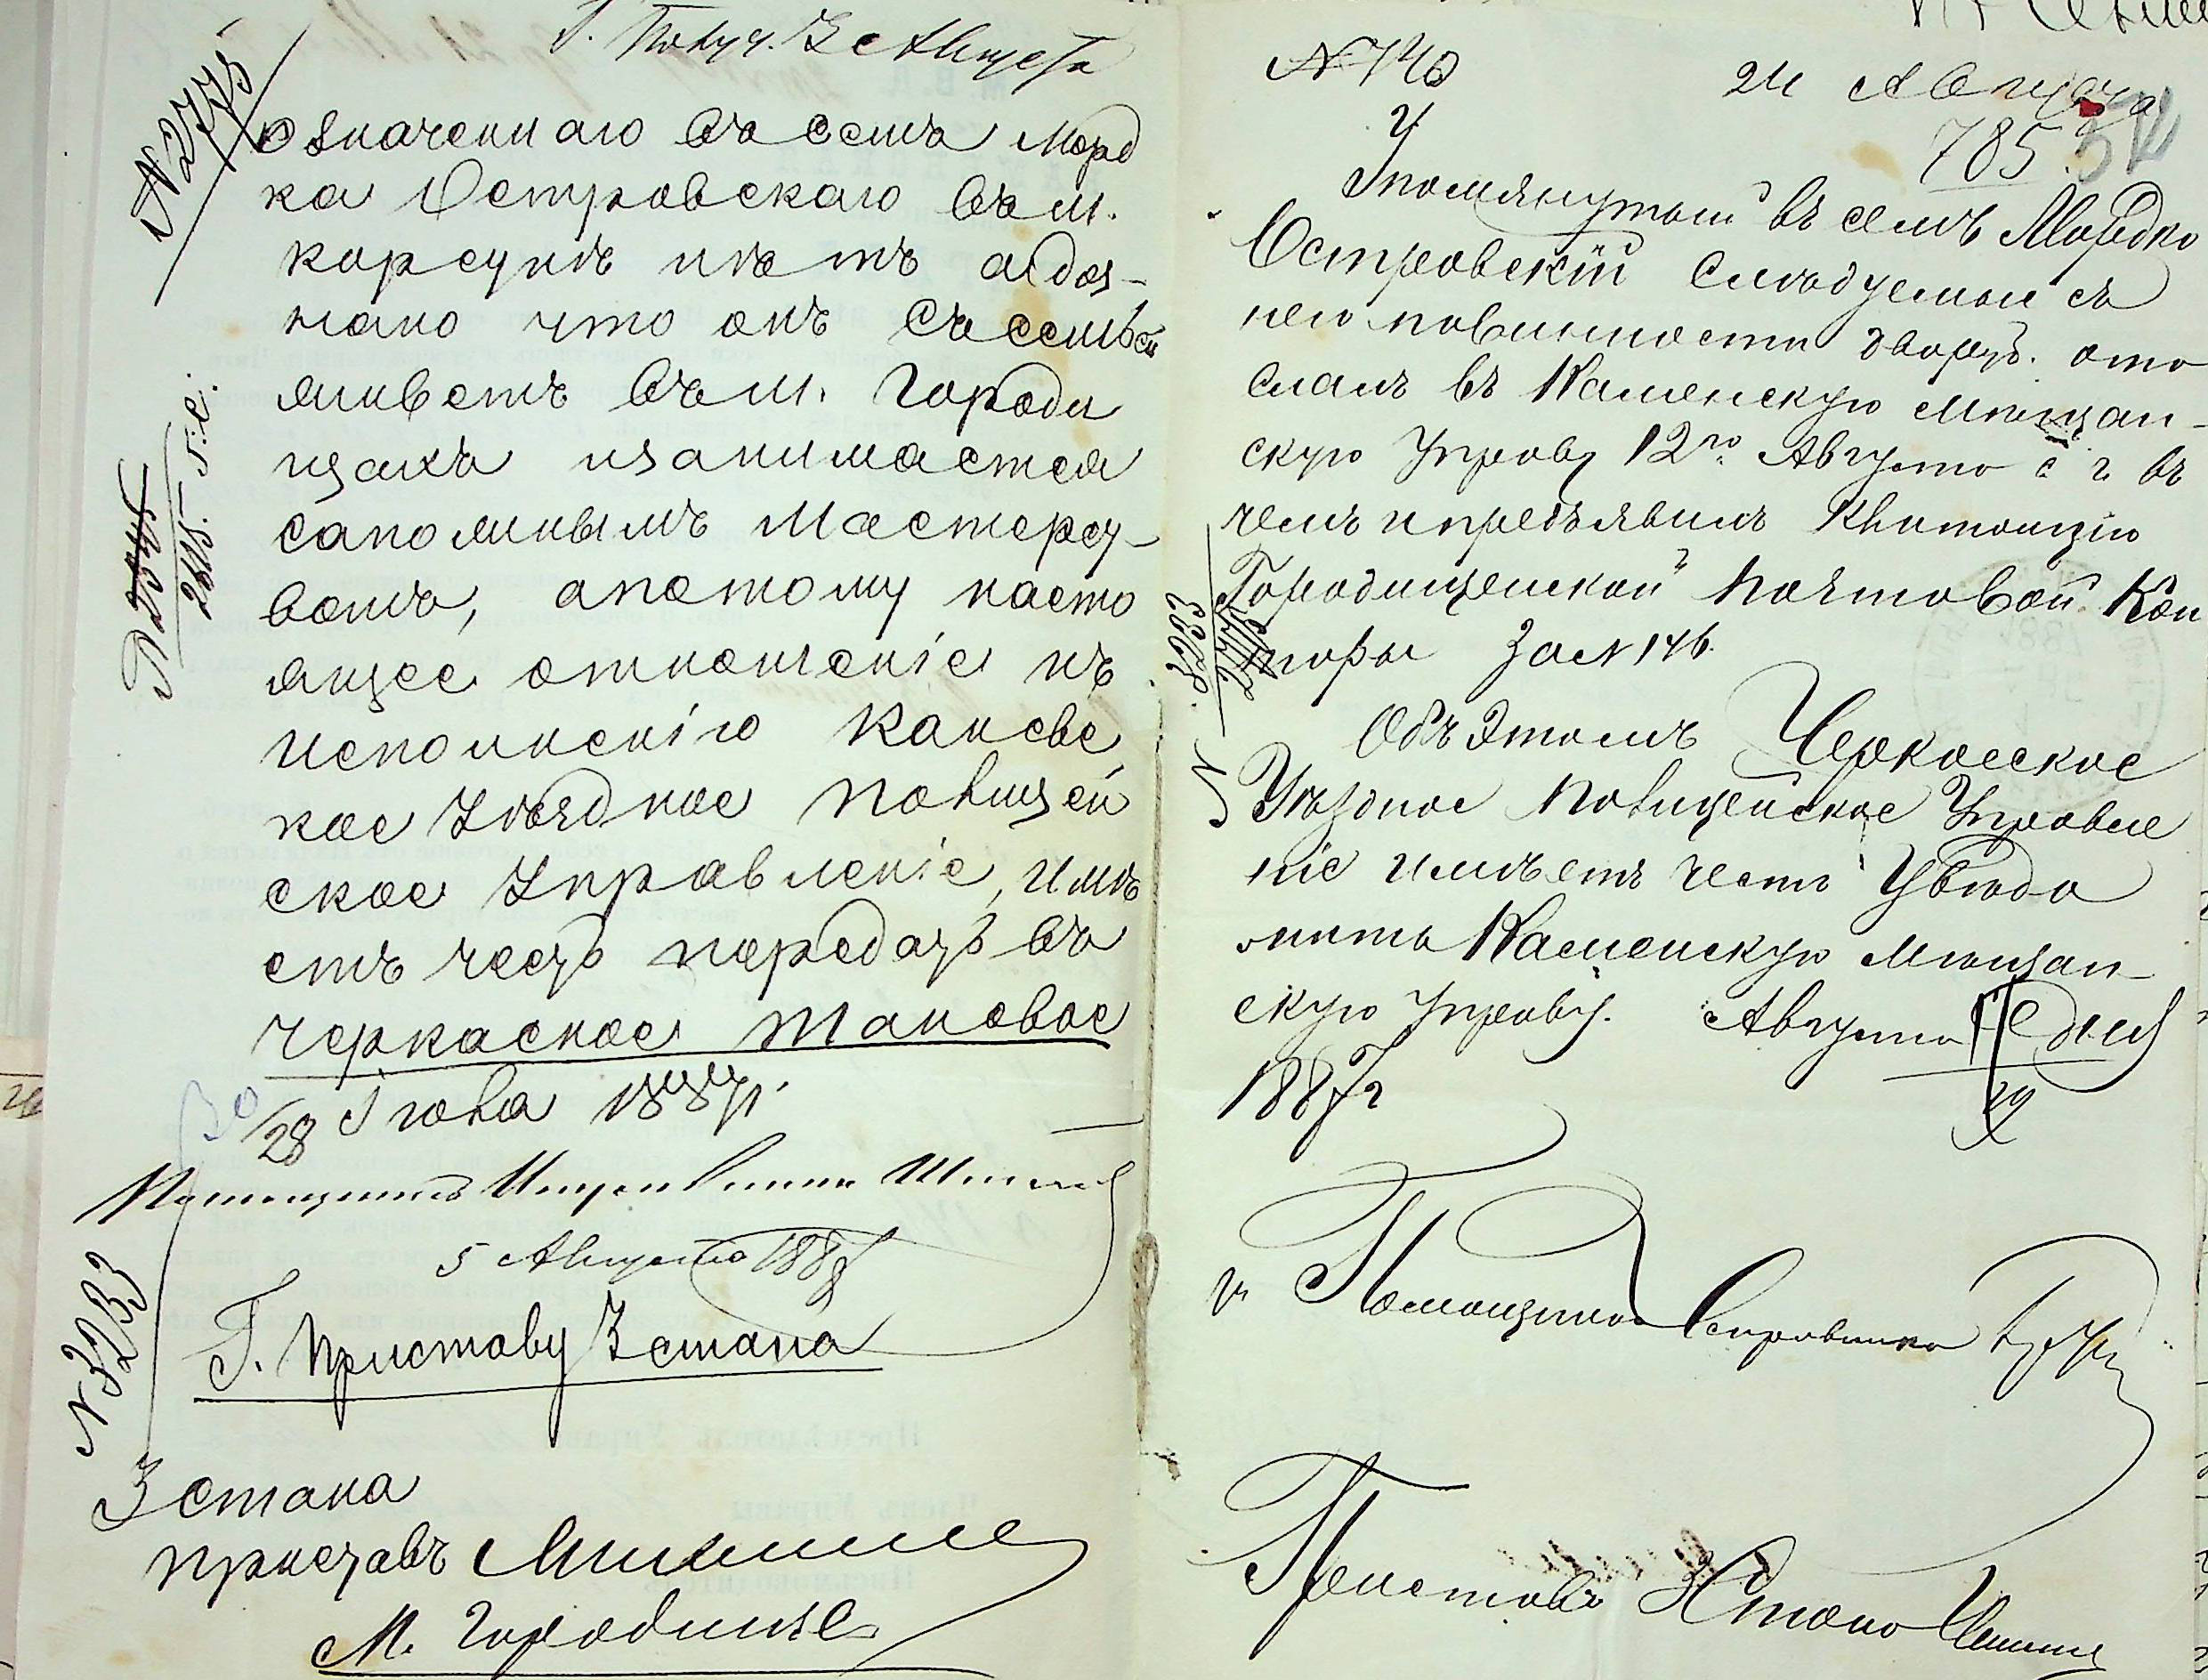 Получ. 3 Августа
№2775
означеннаго въ семъМорд
ка Островскаго въ м.
Корсунѣ нѣтъ а доз-
нано что онъ съ семьей
живетъ въ м. Городи
щахъ и занимается
сапожнымъ мастерс-
вомъ, а потому насто
ящее отношеніе къ
исполненію Каневс
кое Уѣздное Полицей
ское Управленіе, имѣ
етъ честь передать въ
Черкаское таковое
28 Іюля 1887 г.
Помощникъ Исправника
5 Августа 1887
Г. Приставу 3 стана
№3233
3 стана
приставъ
М. Городище
№ 140
24 Августа
785
Упомянутый въ семъ Мордко
Островскій слѣдуемыя съ
него повинности 3 руб. ото
слалъ въ Каменскую мѣщан-
скую Управу 12го Августа с г въ
чемъ и предъявилъ Квитанцію
Городищенской Почтовой Кон
торы за № 146.
Объ этомъ Черкасское
Уѣздное Полицейское Управле
ніе имѣетъ честь увѣдо
мить Каменскую Мѣщан-
скую Управу. Августа дня
1887 г
Помощникъ Исправника
Приставъ 3 Стана